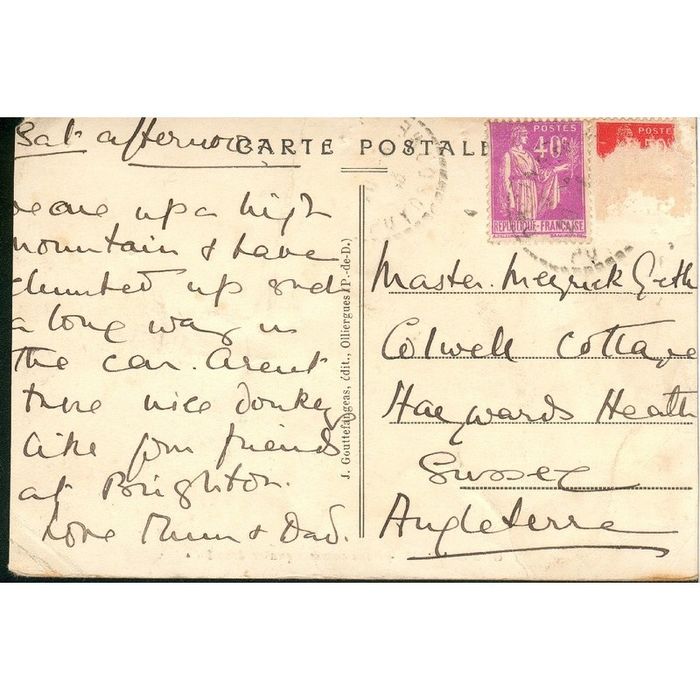 Sat afternoon
CARTE POSTALE
we are up a high
mountain & have
climbed up such
a long way in
the car. Arent
these nice donkeys
like your friends
at Brighton.
Love Mum & Dad.
J. Gouttefangeas, édit., Olliergues (P.-de-D.)
POSTES
40c
REPUBLIQUE-FRANÇAISE
POSTE
Master. Meyrick
Colwell Cottage
Haywards Heath
Sussex
Angleterre